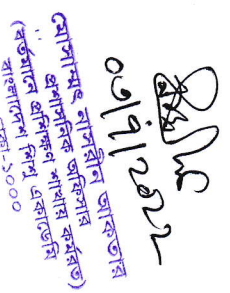 ০৩/৭/2022
মোসাম্মৎ নাসরীন আকতার
প্রশাসনিক অফিসার
(বর্তমানে প্রশিক্ষণ শাখায় কর্মরত)
বাংলাদেশ শিশু একাডেমি
ঢাকা-১০০০